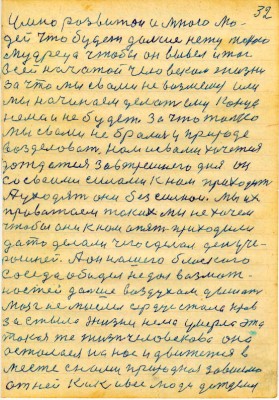 32
Умно развитой и много лю-
дей что будет дальше нету такого
мудреца чтобы он вывел итог
всей начатой человеком жизни
за что мы с вами не возьмемся или
мы начинаем делать ему конца
нема и не будет За что только
мы с вами не брались в природе
возделовать нам с вами хочется
дождатся завтрешнего дня он
со своими силами к нам приходит
А уходят они без силной. Мы их
провожаем таких мы не хочем
чтобы они к нам опять приходили
да то делали что сделал
А он нашего близкого
соседа обидел не дал возмож-
ностей дальше воздухом дышать
Мозг не мыслил сердце стало кров
застыла жизни нема умерло это
такая же тело человеческо оно
осталося на нас и движется в
месте с нами природная зависимо
от ней Как и все люди